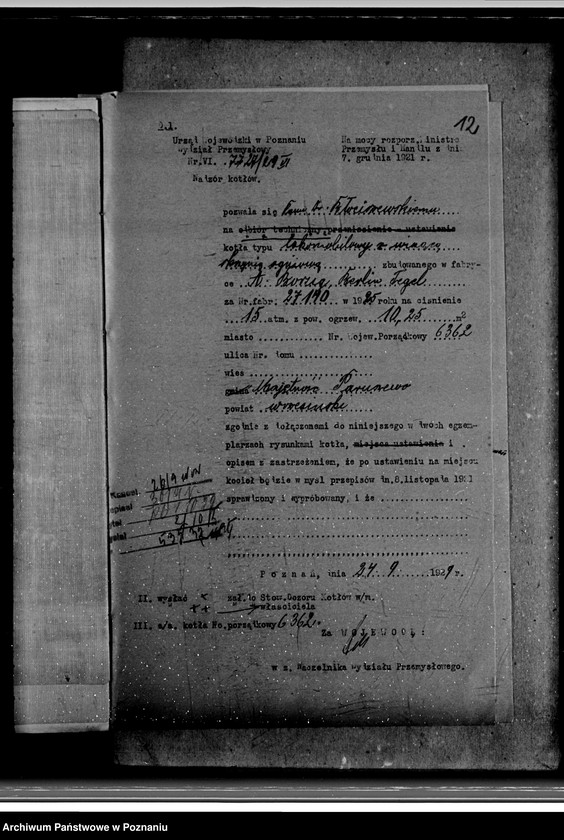 12
Urząd Wojewódzki w Poznaniu
Wydział Przemysłowy
Nr.VI.
Nadzór kotłów.
Na mocy rozporz. Ministra
Przemysłu i Handlu z dni
7. grudnia 1921 r.
pozwala się
na odbiór techniczny, przeniesienie - ustawienie
kotła typu lokomobilowy z
zbudowanego w fabry-
ce A. Borsig, Berlin Tegel
za Nr.fabr. 27190 w 1925 roku na ciśnienie
15 atm. z pow. ogrzew. 10,25 m2
miasto ............. Nr. Wojew.Porządkowy 6362
ulica Nr. domu ...............
wieś .........................
gmina Majętność
powiat wrzesiński
zgodnie z dołączonemi do niniejszego w dwóch egzem-
plarzach rysunkami kotła, miejsca ustawienia i
opisem z zastrzeżeniem, że po ustawieniu na miejscu
kocioł będzie w myśl przepisów dn.8.listopada 1921
sprawdzony i wypróbowany, i że ....................
Poznań, dnia 24.9 1929 r.
II. wysłać zał. do Stow.Dozoru Kotłów w/m.
właściciela
III. a/a. kotła No.porządkowy 6362.
Za WOJEWODĘ:
w z. Naczelnika Wydziału Przemysłowego.
Archiwum Państwowe w Poznaniu